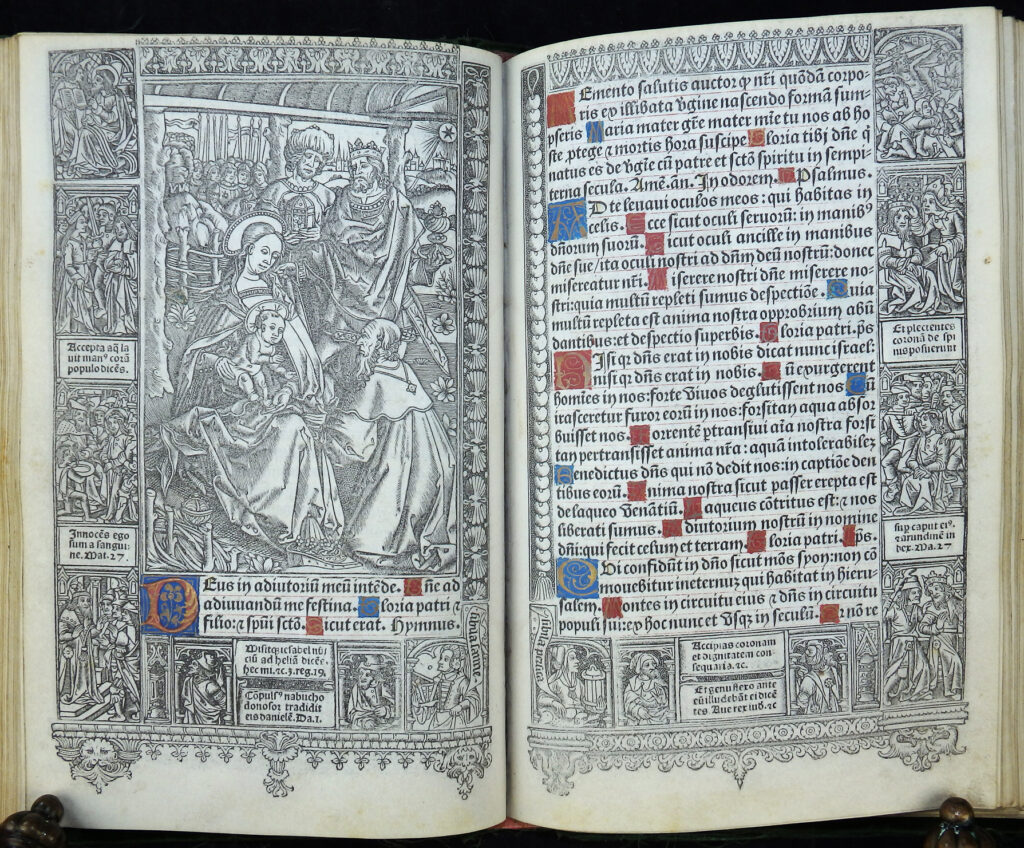 Accepta aq̃ la
uit manꝰ corã
populo dicẽs.
Innocẽs ego
sum a sangui
ne. Mat. 27
Eus in adiutoriũ meũ intẽde. Dñe ad
adiuuandũ me festina. Gloria patri ⁊
filio: ⁊ spũi sctõ. Sicut erat. Hymnus.
Misitque iezabel nũ
ciũ ad heliã dicẽs:
hec mi. ⁊c. 3. reg. 19.
Cõpulsꝰ nabucho
donosor tradidit
eis danielẽ. Da. 1.
Emento salutis auctor qꝫ nr̃i quõdã corpo-
ris ex illibata v̄gine nascendo formã sum-
pseris Maria mater gr̃e mater mie tu nos ab ho
ste ꝓtege ⁊ mortis hora suscipe Gloria tibi dñe q̃
natus es de v̄gie cũ patre et sctõ spiritu in sempi
terna secula. Amẽ. añ. In odorem. Psalmus.
AD te leuaui oculos meos: qui habitas in
celis. Ecce sicut oculi seruorũ: in manibꝰ
dñorum suorũ. Sicut oculi ancille in manibus
dñe sue/ ita oculi nostri ad dñm deũ nostrũ: donec
misereatur nr̃i. Miserere nostri dñe miserere no-
stri: quia multũ repleti sumus despectiõe. Quia
multũ repleta est anima nostra opprobrium abũ
dantibus: et despectio superbis. Gloria patri. p̃s
NIsi qꝛ dñs erat in nobis dicat nunc israel:
nisi qꝛ dñs erat in nobis. Cũ exurgerent
homĩes in nos: forte viuos deglutissent nos Cũ
irasceretur furor eorũ in nos: forsitan aqua absor
buisset nos. Torrentẽ ꝑtransiui aĩa nostra forsi
tan pertransisset anima nr̃a: aquã intolerabilẽ
Benedictus dñs qui nõ dedit nos: in captiõe den
tibus eorũ. Anima nostra sicut passer erepta est
de laqueo venãtiũ. Laqueus cõtritus est: ⁊ nos
liberati sumus. Adiutorium nostrũ in nomine
dñi: qui fecit celum et terram. Gloria patri. p̃s.
QUi confidũt in dño sicut mõs syon: non cõ
mouebitur in eternũ qui habitat in hieru-
salem. Montes in circuitu eius ⁊ dñs in circuitu
populi sui: ex hoc nunc et vsqꝫ in seculũ. Quia nõ re
Et plectentes
coronã de spi
nis posuerunt
sup caput eiꝰ
⁊ arundinẽ in
dex. Ma. 27
Accipias coronam
et dignitatem con-
sequaris. ⁊c.
Et genu flexo ante
eũ illudebãt ei dicẽ
tes. Aue rex iud. ⁊c